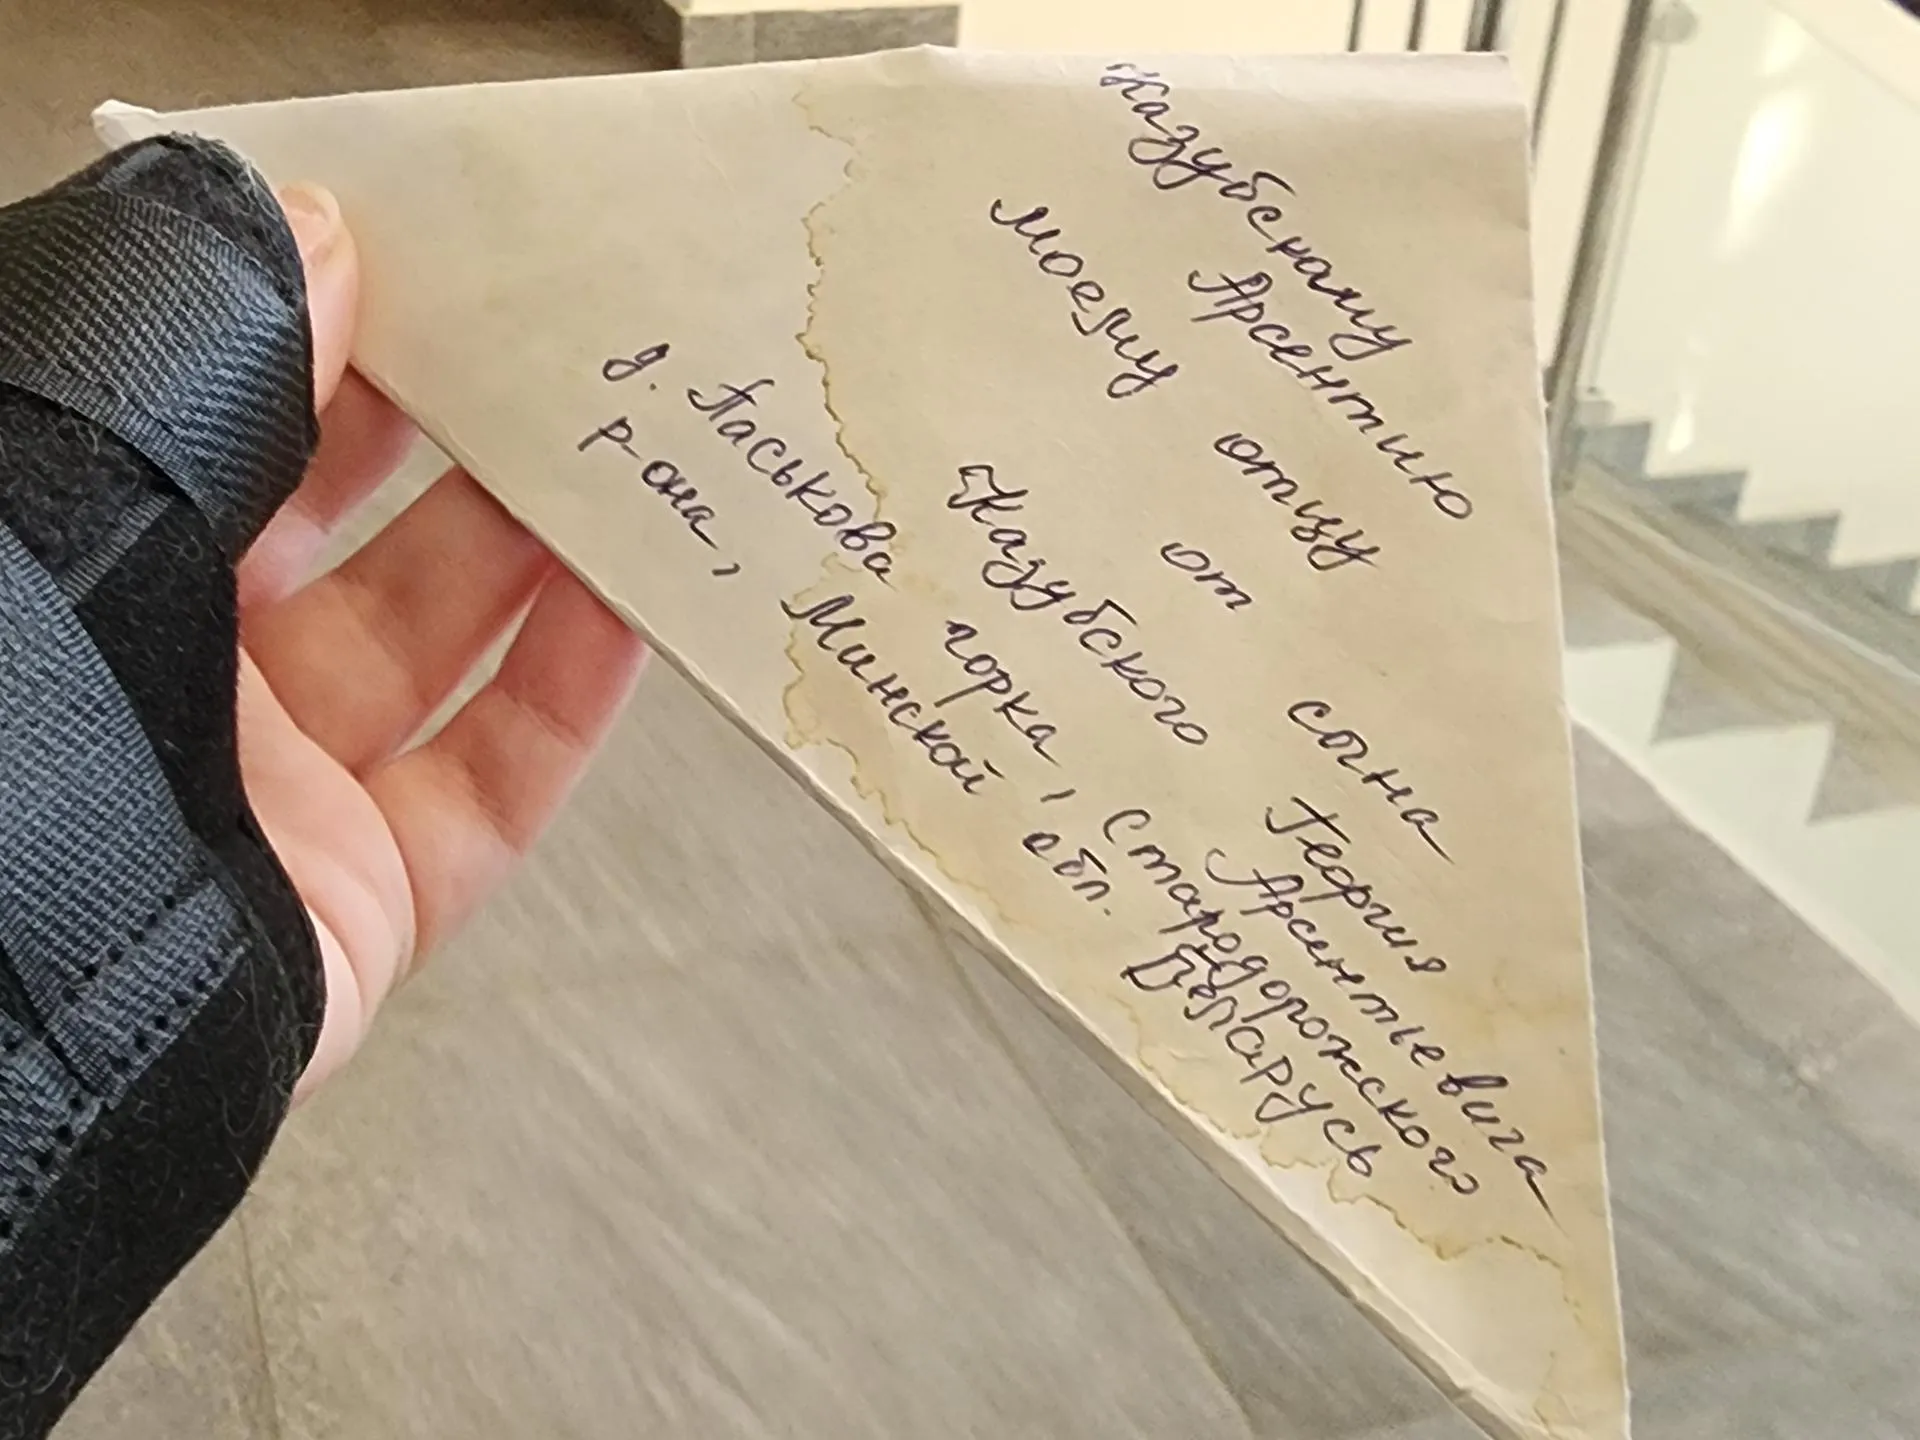 Казубскому Арсентию
моему отцу от сына
Казубского Георгия Арсентьевича
д. Паськова горка, Стародорожского
р-она, Минской обл. Беларусь